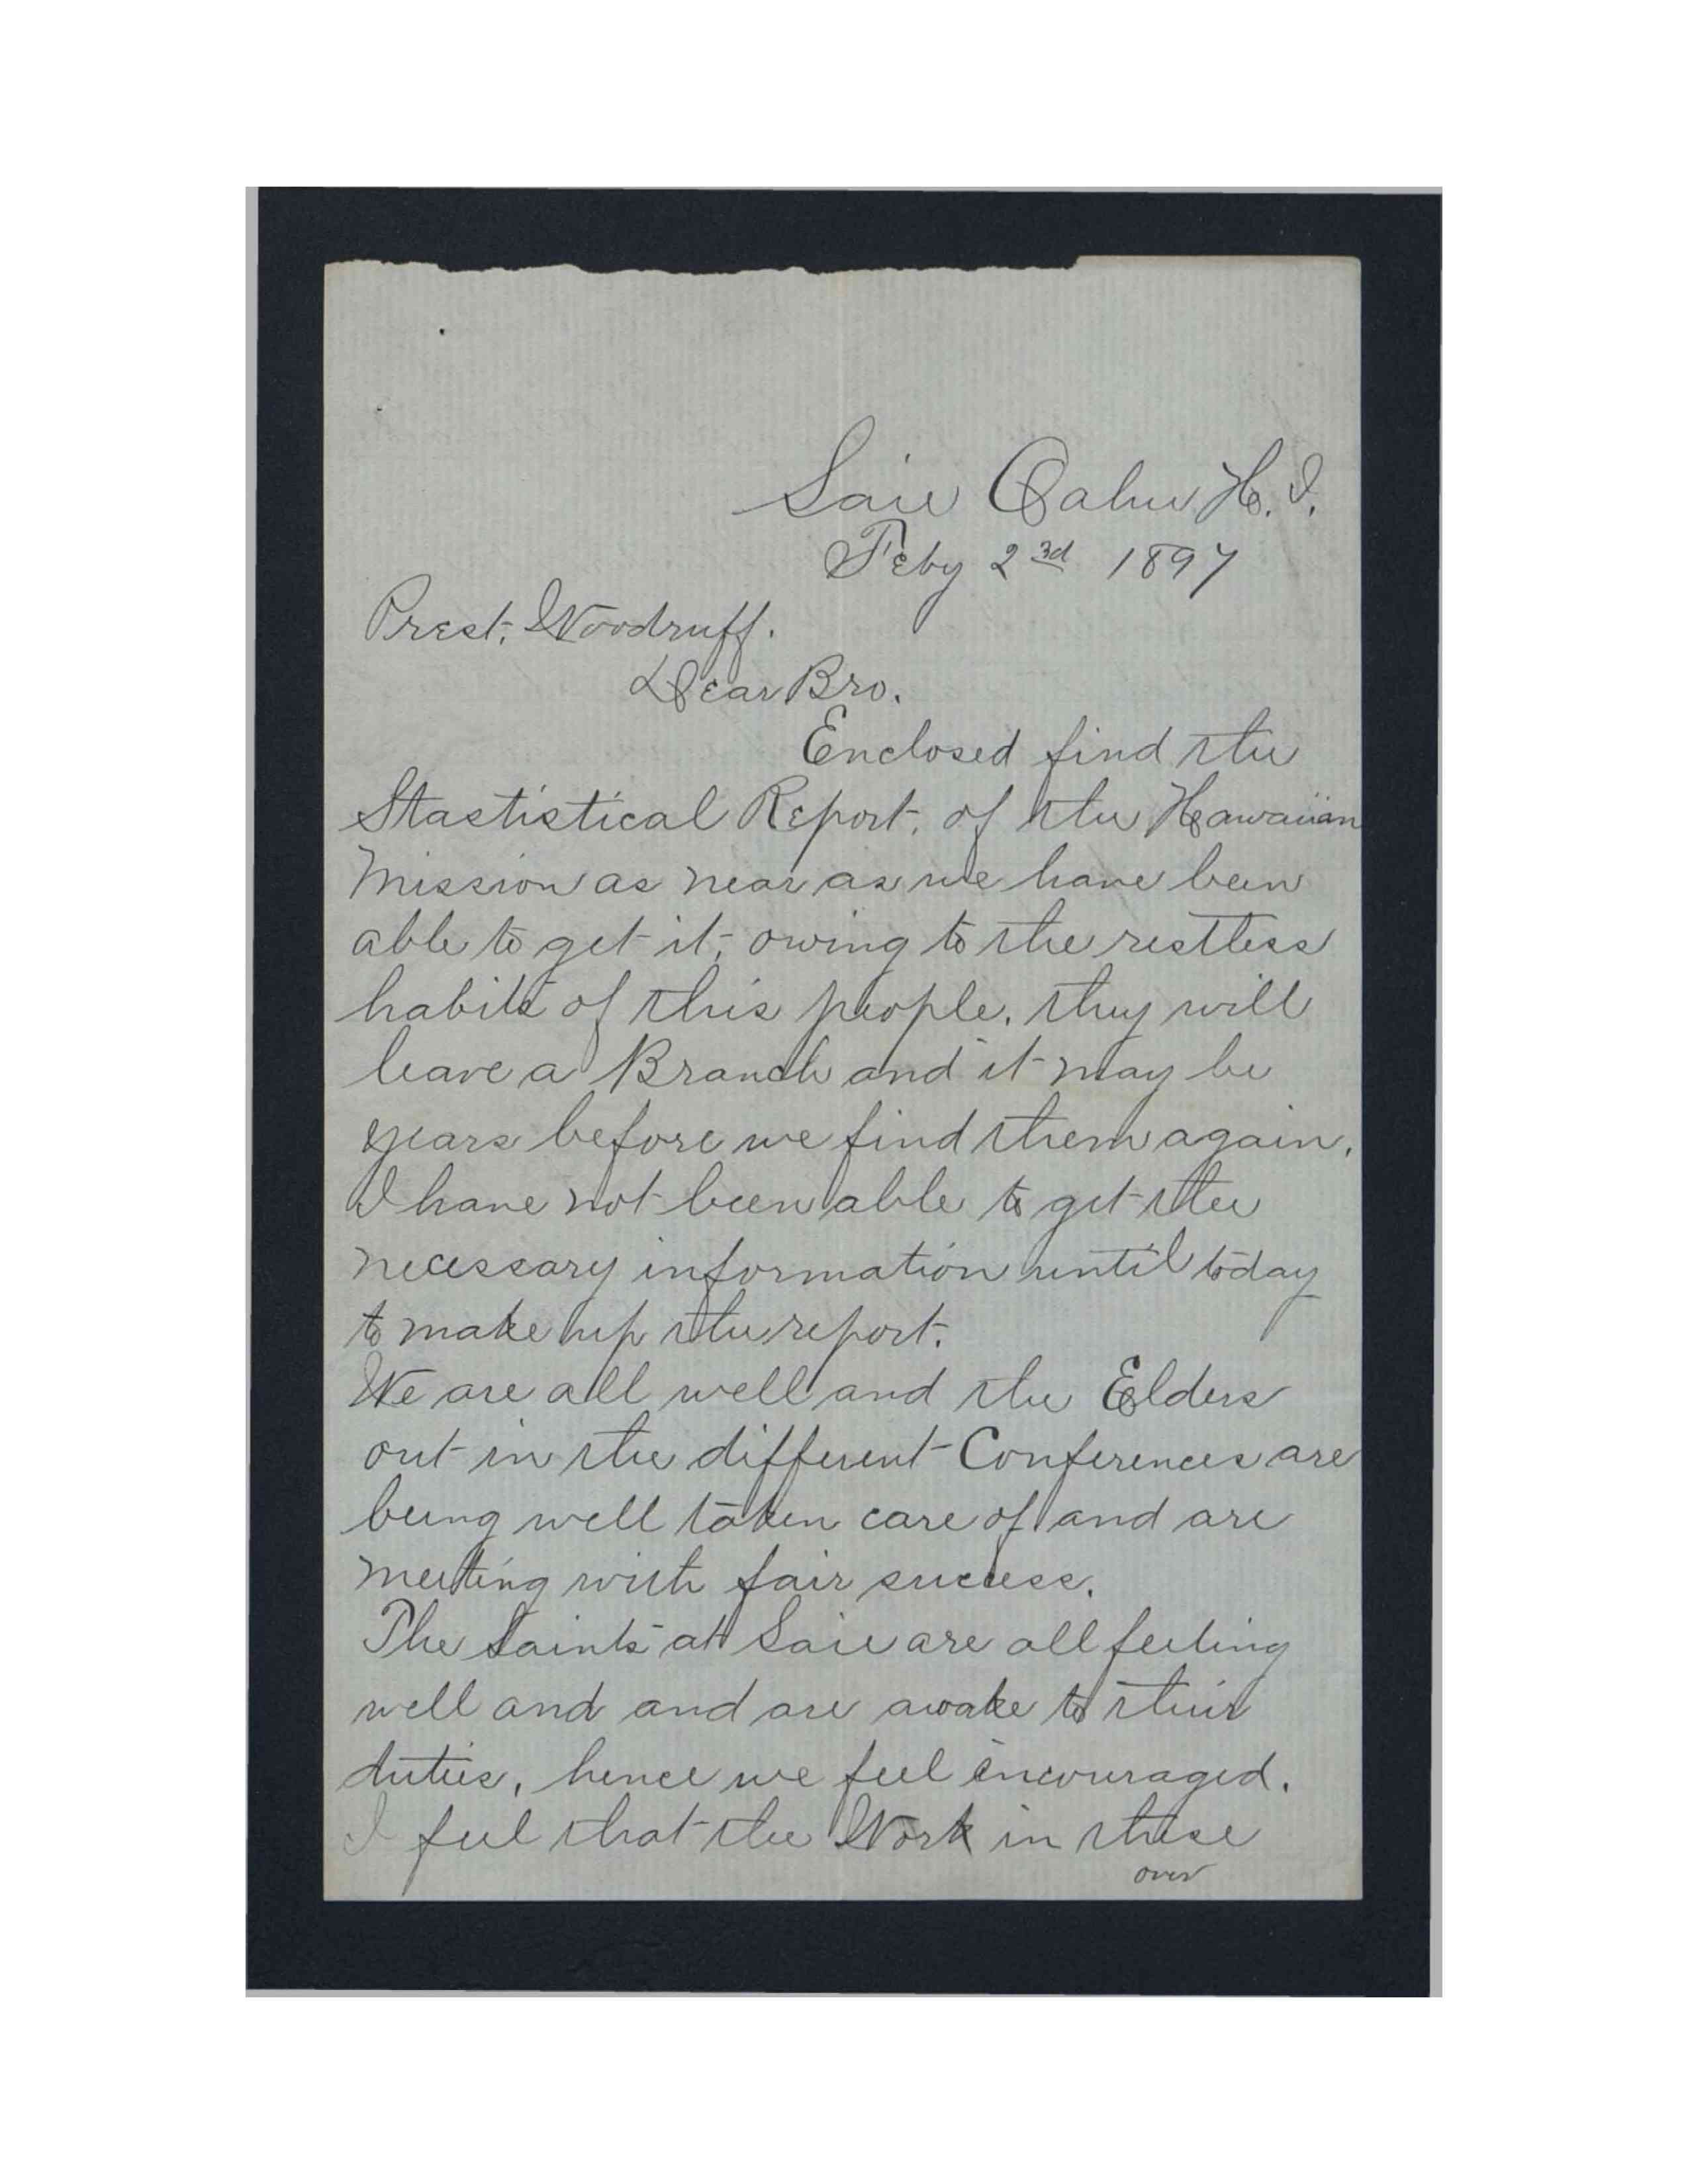 Laie Oahu H. I.
Feby 2 3d 1897
Prest. Woodruff.
Dear Bro.
Enclosed find the
Stastistical Report. of the Hawaiian
Mission as near as we have been
able to get it, owing to the restless
habits of this people. they will
leave a Branch and it may be
years before we find them again.
I have not been able to get the
necessary information until today
to make up the report.
We are all well and the Elders
out in the different Conferences are
being well taken care of and are
meeting with fair success.
The Saints at Laie are all feeling
well and and are awake to their
duties, hence we feel encouraged.
I feel that the Work in these
over